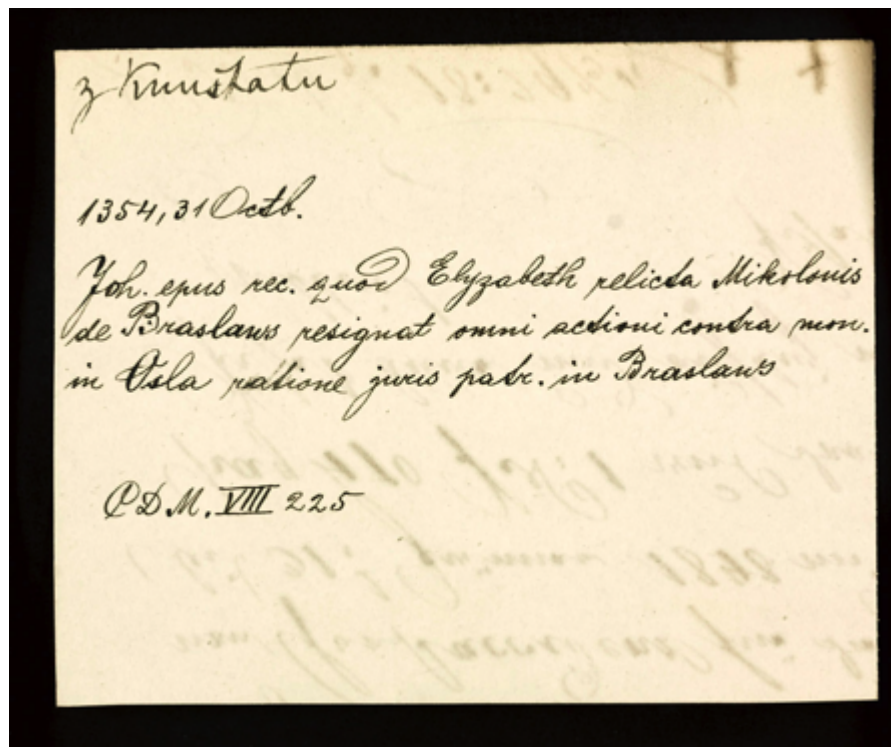 z Kunstatu
1354, 31 Octb.
Joh. epus rec. quod Elyzabeth relicta Mikolonis
de Braslaws resignat omni actioni contra mon.
in Osla ratione juris patr. in Braslaws
C D M. VIII 225